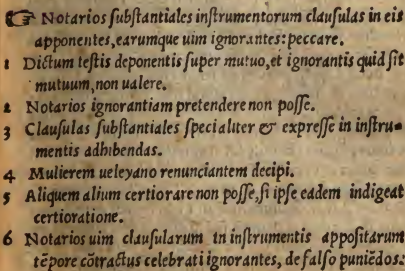 ☞ Notarios ſubſtantiales inſtrumentorum clauſulas in eis
apponentes, earumque uim ignorantes: peccare.
1 Dictum teſtis deponentis ſuper mutuo, et ignorantis quid ſit
mutuum, non ualere.
2 Notarios ignorantiam pretendere non poſſe.
3 Clauſulas ſubſtantiales ſpecialiter & expreſſe in inſtru⸗
mentis adhibendas.
4 Mulierem ueleyano renunciantem decipi.
5 Aliquem alium certiorare non poſſe, ſi ipſe eadem indigeat
certioratione.
6 Notarios uim clauſularum in inſtrumentis appoſitarum
tẽpore cõtractus celebrati ignorantes, de falſo puniẽdos: